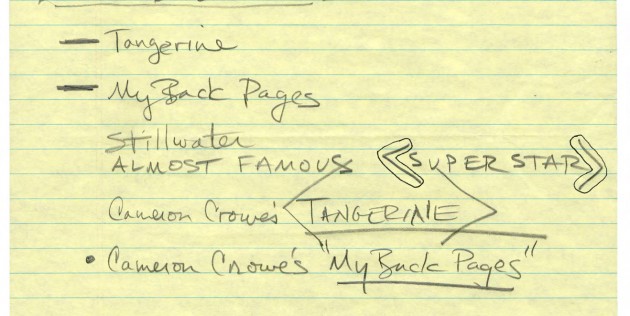 — Tangerine
— My Back Pages
Stillwater
ALMOST FAMOUS <SUPER STAR>
Cameron Crowe's <TANGERINE>
• Cameron Crowe's "My Back Pages"